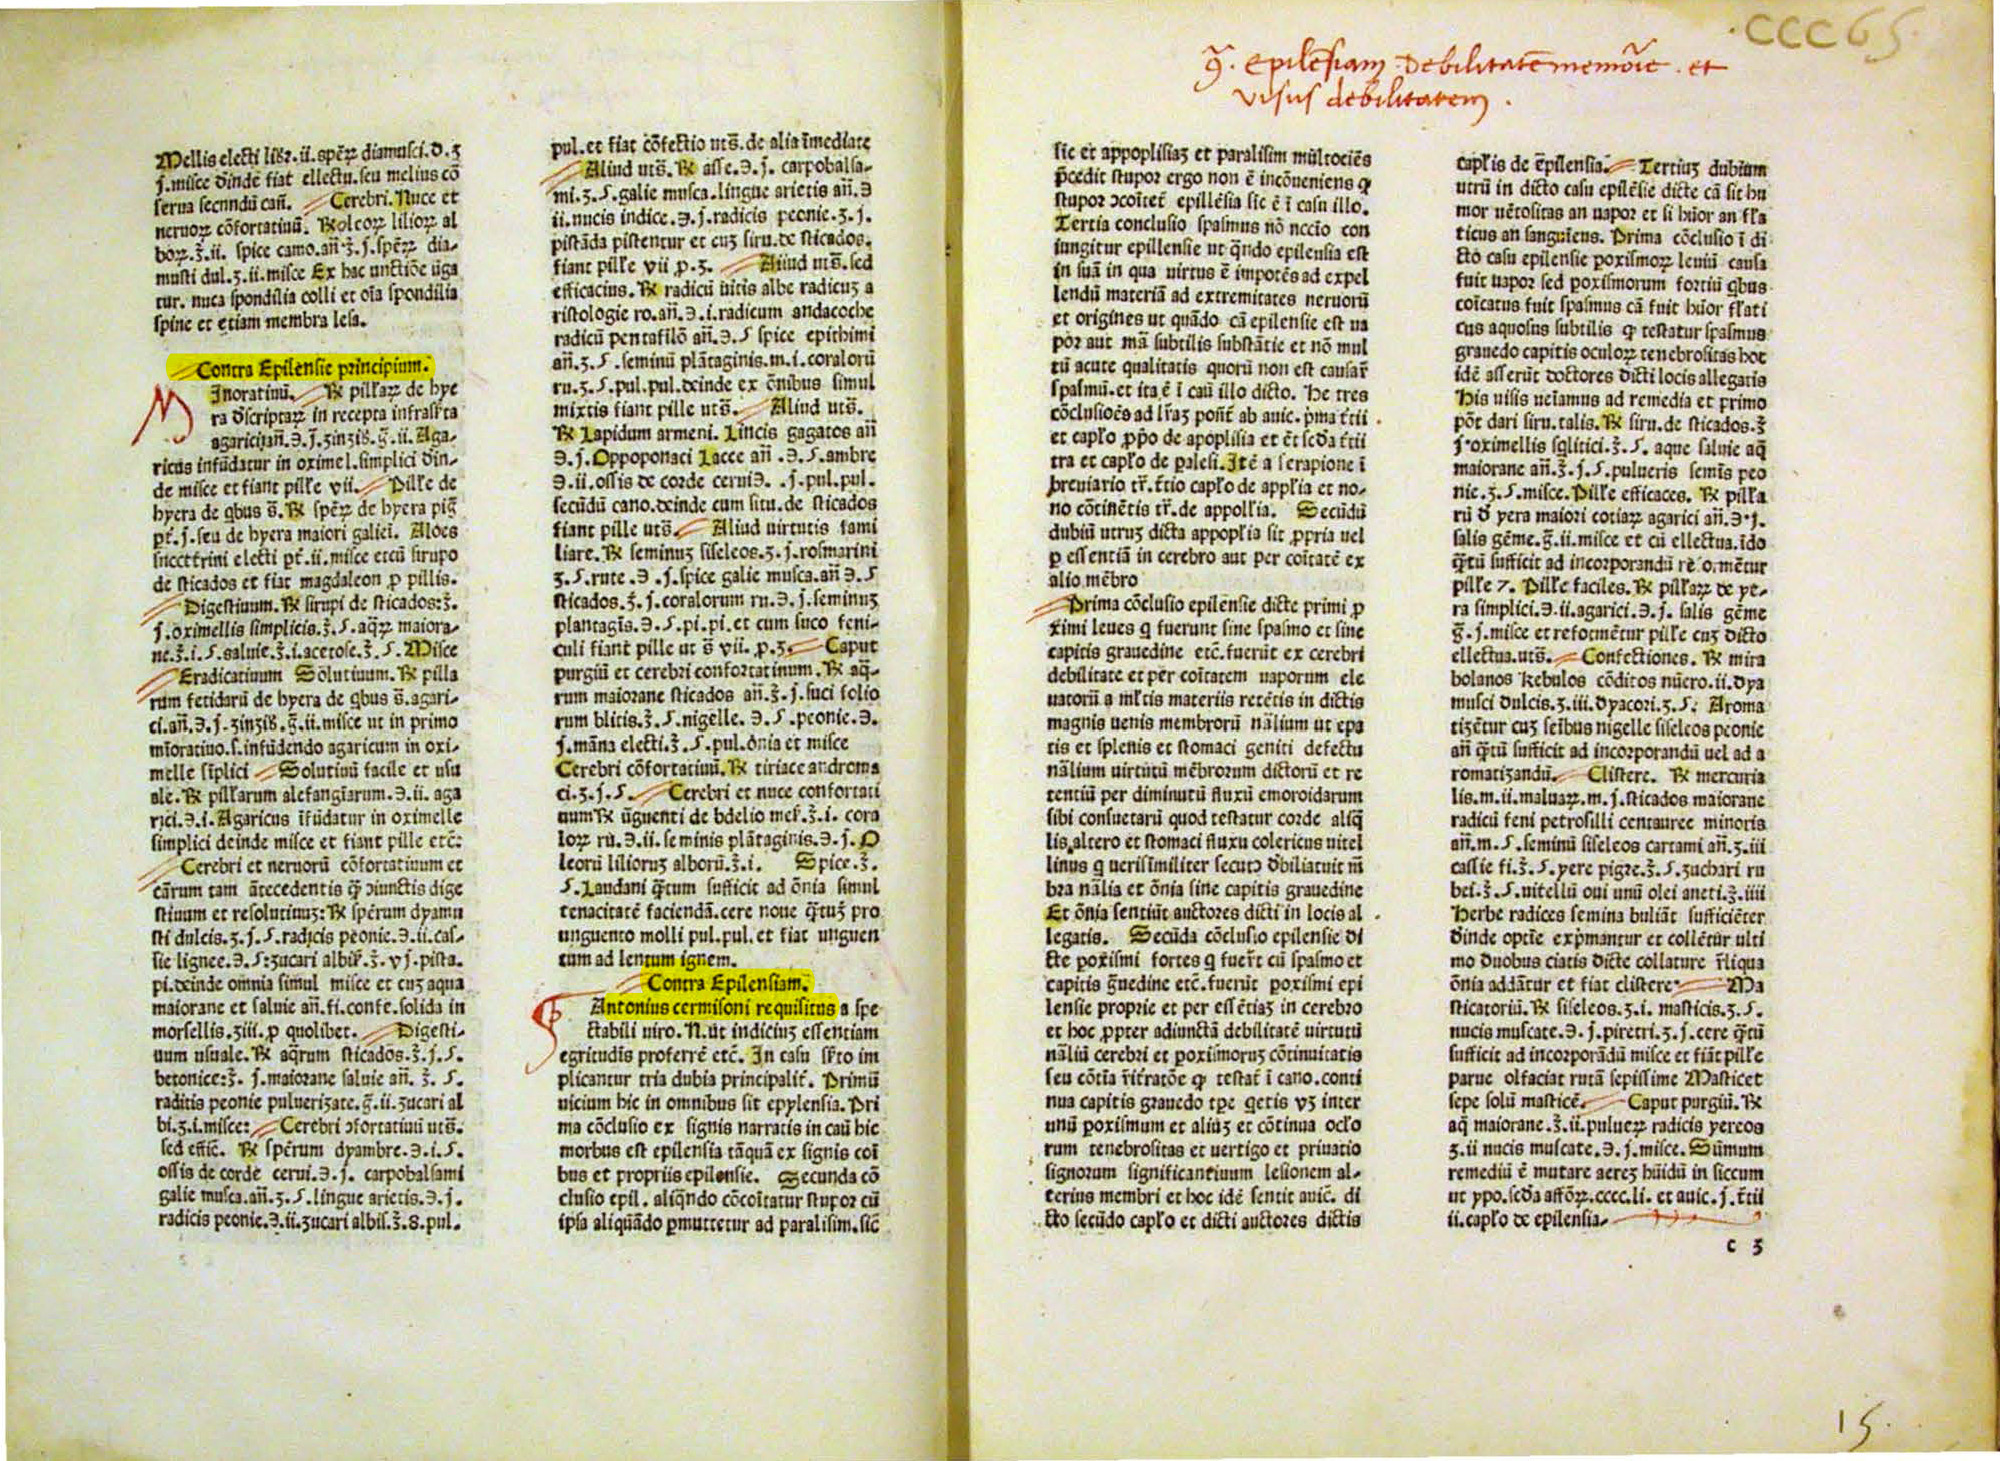 Mellis electi libr.ii.speꝝ diamusci.d.ʒ
j.misce dinde fiat ellectu.seu melius cō
serua secundū cañ. Cerebri. Nuce et
neruoꝝ cōfortatiuū. ℞ olcoꝝ lilioꝝ al
boꝝ.℥.ii. spice camo.añ.℥.j.speꝝ dia-
musti dul.ʒ.ii.misce Ex hac unctiōe ūga
tur. nuca spondilia colli et oīa spondilia
spine et etiam membra lesa.
Contra Epilensie principium.
M
Inoratiuū. ℞ pillaꝝ de hye
ra dscriptaꝝ in recepta infrascrta
agarici añ.℈.j.ʒinʒib.g̃.ii. Aga-
ricus infūdatur in oximel.simplici din-
de misce et fiant pille vii. Pille de
hyera de gbus s̄. ℞ speꝝ de hyera pig̃
pt̄.j.seu de hyera maiori galieī. Aloes
succtrini electi pt̄.ii.misce et cū sirupo
de sticados et fiat magdaleon ꝓ pillis.
Digestiuum. ℞ sirupi de sticados:℥.
j.oximellis simplicis.℥.ʃ.aqꝝ maiora-
ne.℥.i.ʃ.saluie.℥.i.acetose.℥.ʃ. Misce
Eradicatiuum Solutiuum. ℞ pilla
rum fetidarū de hyera de gbus s̄.agari-
ci.añ.℈.j.ʒinʒib.g̃.ii.misce ut in primo
mīoratiuo.s.infūdendo agaricum in oxi-
melle sīplici Solutiuū facile et usu
ale. ℞ pillarum alefangīarum.℈.ii. aga
rici.℈.i. Agaricus īfūdatur in oximelle
simplici deinde misce et fiant pille etc̄:
Cerebri et neruorū cōfortatiuum et
cārum tam ātecedentis q̄ ꝯiunctis dige
stiuum et resolutiuuʒ: ℞ spērum dyamu
sti dulcis.ʒ.j.ʃ.radicis peonie.℈.ii.cas-
sie lignee.℈.ʃ:ʒucari albiſ.℥.vj.pista.
pi.deinde omnia simul misce et cuʒ aqua
maiorane et saluie añ.fi.confe.solida in
morsellis.ʒiii.ꝑ quolibet. Digesti-
uum usuale. ℞ aqrum sticados.℥.j.ʃ.
betonice:℥. j.maiorane saluie añ. ℥. ʃ.
raditis peonie pulueriʒate.g̃.ii.ʒucari al
bi.ʒ.i.misce: Cerebri ꝯfortatiuū uts̄.
sed effic̄. ℞ spērum dyambre.℈.i.ʃ.
ossis de corde cerui.℈.j. carpobalsami
galie musca.añ.ʒ.ʃ.lingue arietis.℈.j.
radicis peonie.℈.ii.ʒucari albis.℥.8.pul.
pul.et fiat cōfectio uts̄.de alia īmediate
Aliud uts̄. ℞ asse.℈.j. carpobalsa-
mi.ʒ.ʃ.galie musca.lingue arietis añ.℈
ii.nucis indice.℈.j.radicis peonie.ʒ.j.
pistāda pistentur et cuʒ siru.de sticados.
fiant pille vii ꝓ.ʒ. Aliud uts̄.sed
efficacius. ℞ radicū uitis albe radicuʒ a
ristologie ro.añ.℈.i.radicum andacoche
radicū pentafilō añ.℈.ʃ spice epithimi
añ.ʒ.ʃ.seminū plātaginis.m.i.coralorū
ru.ʒ.ʃ.pul.pul.deinde ex ōnibus simul
mixtis fiant pille uts̄. Aliud uts̄.
℞ Lapidum armeni. Lincis gagatos añ
℈.j. Oppoponaci Lacce añ.℈.ʃ.ambre
℈.ii.ossis de corde cerui℈..j.pul.pul.
secūdū cano.deinde cum situ.de sticados
fiant pille uts̄. Aliud uirtutis fami
liare. ℞ seminuʒ siseleos.ʒ.j.rosmarini
ʒ.ʃ.rute.℈.j.spice galie musca.añ ℈.ʃ
sticados.ʒ.j.coralorum ru.℈.j.seminuʒ
plantagīs.℈.ʃ.pi.pi.et cum suco feni-
culi fiant pille ut s̄ vii.ꝓ.ʒ. Caput
purgiū et cerebri confortatiuum. ℞ aq-
rum maiorane sticados añ.℥.j.suci folio
rum blitis.℥.ʃ.nigelle.℈.ʃ.peonie.℈.
j.māna electi.℥.ʃ.pul.ōnia et misce
Cerebri cōfortatiuū. ℞ tiriace androma
ci.ʒ.j.ʃ. Cerebri et nuce confortati
uum ℞ ūguenti de bdelio mes̄.℥.i. cora
loꝝ rū.℈.ii.seminis plātaginis.℈.j. O
leorū lilioruʒ alborū.℥.i. Spice.℥.
ʃ.Laudani q̄tum sufficit ad ōnia simul
tenacitatē faciendā.cere noue q̄tuʒ pro
unguento molli pul.pul.et fiat unguen
tum ad lentum ignem.
Contra Epilensiam.
Antonius cermisoni requisitus a spe
ctabili uiro. N.ut indiciuʒ essentiam
egritudīs proferrē etc̄. In casu scrto im
plicantur tria dubia principalit̄. Primū
uicium hic in omnibus sit epylensia. Pri
ma cōclusio ex signis narratis in caū hic
morbus est epilensia tāquā ex signis coī
bus et propriis epilensie. Secunda cō
clusio epil. aliqn̄do cōcoītatur stupor cū
ipsa aliquādo ꝑmuttetur ad paralisim.sic̄
.CCC65.
ꝯ. Epilēsiam Debilitatē memorie. et
visus debilitatem.
sie et appoplisiaʒ et paralisim mūltociēs
p̄cedit stupor ergo non ē incōueniens ꝙ
stupor ꝯcoītet epillēsia sic ē ī casu illo.
Tertia conclusio spasmus nō nccio con
iungitur epillensie ut qn̄do epilensia est
in suā in qua uirtus ē impotēs ad expel
lendū materiā ad extremitates neruorū
et origines ut quādo cā epilensie est ua
por aut mā subtilis substātie et nō mul
tū acute qualitatis quorū non est causar̄
spasmū.et ita ē ī caū illo dicto. He tres
cōclusioēs ad lr̄aʒ ponūt ab auic. p̄ma t̄tii
et caplo ꝓpo de apoplisia et ēt scd̄a t̄tii
tra et caplo de palesi. Itē a serapione ī
breuiario tr̄.t̄tio caplo de applia et no-
no cōtinētis tr̄.de appollia. Secūdū
dubiū utruʒ dicta appoplia sit ꝓpria uel
ꝑ essentiā in cerebro aut per coītatē ex
alio mēbro
Prima cōclusio epilensie dicte primi ꝑ
ximi leues q fuerunt sine spasmo et sine
capitis grauedine etc̄.fuerūt ex cerebri
debilitate et per coītatem uaporum ele
uatorū a mltis materiis retētis in dictis
magnis uenis membrorū nālium ut epa
tis et splenis et stomaci geniti defectu
nālium uirtutū mēbrorum dictorū et re
tentiū per diminutū fluxū emoroidarum
sibi consuetarū quod testatur corde aliq
lis altero et stomaci fluxu colericus uitel
linus q uerisimiliter secutꝰ dbiliatuit m̄
bra nālia et ōnia sine capitis grauedine
Et ōnia sentiūt auctores dicti in locis al
legatis. Secūda cōclusio epilensie di
cte ꝑoxismi fortes q fuer̄t cū spasmo et
capitis g̃uedine etc̄.fuerūt ꝑoxismi epi
lensie proprie et per essētiaʒ in cerebro
et hoc ꝓpter adiunctā debilitatē uirtutū
nāliū cerebri et ꝑoxismoruʒ cōtinuitatis
seu cōtīa r̄itratōe ꝙ testat̄ ī cano.conti
nua capitis grauedo tꝑe getis vʒ inter
unū ꝑoxismum et aliūʒ et cōtinua oclo
rum tenebrositas et uertigo et priuatio
signorum significantiuum lesionem al-
terius membri et hoc idē sentit auic̄. di
cto secūdo caplo et dicti auctores dictis
caplis de ēpilensia. Tertiuʒ dubium
utrū in dicto casu epilēsie dicte cā sit hu
mor uētositas an uapor et si hūor an fla
ticus an sanguīeus. Prima cōclusio ī di
cto casu epilensie ꝑoxismoꝝ leuiū causa
fuit uapor sed ꝑoxismorum fortiū gbus
coīcatus fuit spasmus cā fuit hūor flati
cus aquosus subtilis ꝙ testatur spasmus
grauedo capitis oculoꝝ tenebrositas hoc
idē asserūt doctores dicti locis allegatis
His uisis ueīamus ad remedia et primo
pōt dari siru.talis. ℞ siru.de sticados.℥
j.oximellis sqlitici.℥.ʃ. aque saluie aq̄
maiorane añ.℥.j.ʃ.pulueris semīs peo
nie.ʒ.ʃ.misce. Pille efficaces. ℞ pilla
rū d yera maiori cotiaꝝ agarici añ.℈.j.
salis gēme.g̃.ii.misce et cū ellectua.īdo
q̄tū sufficit ad incorporandū reformētur
pille 7. Pille faciles. ℞ pillaꝝ de ye-
ra simplici.℈.ii.agarici.℈.j. salis gēme
g̃.j.misce et reformētur pille cuʒ dicto
ellectua.uts̄. Confectiones. ℞ mira
bolanos kebulos cōditos nūero.ii.dya
musci dulcis.ʒ.iii.dyacori.ʒ.ʃ: Aroma
tiʒētur cuʒ seībus nigelle siseleos peonie
añ q̄tū sufficit ad incorporandū uel ad a
romatiʒandū. Clistere. ℞ mercuria
lis.m.ii.maluaꝝ.m.j.sticados maiorane
radicū feni petrosilli centauree minoris
añ.m.ʃ.seminū siseleos cartami añ.ʒ.iii
cassie fi.℥.ʃ.yere pigre.℥.ʃ.ʒuchari ru
bei.℥.ʃ.uitellū oui unū olei aneti.℥.iiii
Herbe radices semina buliāt sufficiēter
dinde optīe exp̄mantur et collētur ulti
mo duobus ciatis dicte collature r̄liqua
ōnia addātur et fiat clistere. Ma
sticatoriū. ℞ siseleos.ʒ.i. masticis.ʒ.ʃ.
nucis muscate.℈.j.piretri.ʒ.j.cere q̄tū
sufficit ad incorporādū misce et fiāt pille
parue olfaciat rutā sepissime Masticet
sepe solū masticē. Caput purgiū. ℞
aq̄ maiorane.℥.ii.pulueꝝ radicis yereos
ʒ.ii nucis muscate.℈.j.misce. Sūmum
remediū ē mutare aereʒ hūidū in siccum
ut ypo.scd̄a afforꝝ.cccc.li. et auic.j.t̄tii
ii.caplo de epilensia.
c 3
15.